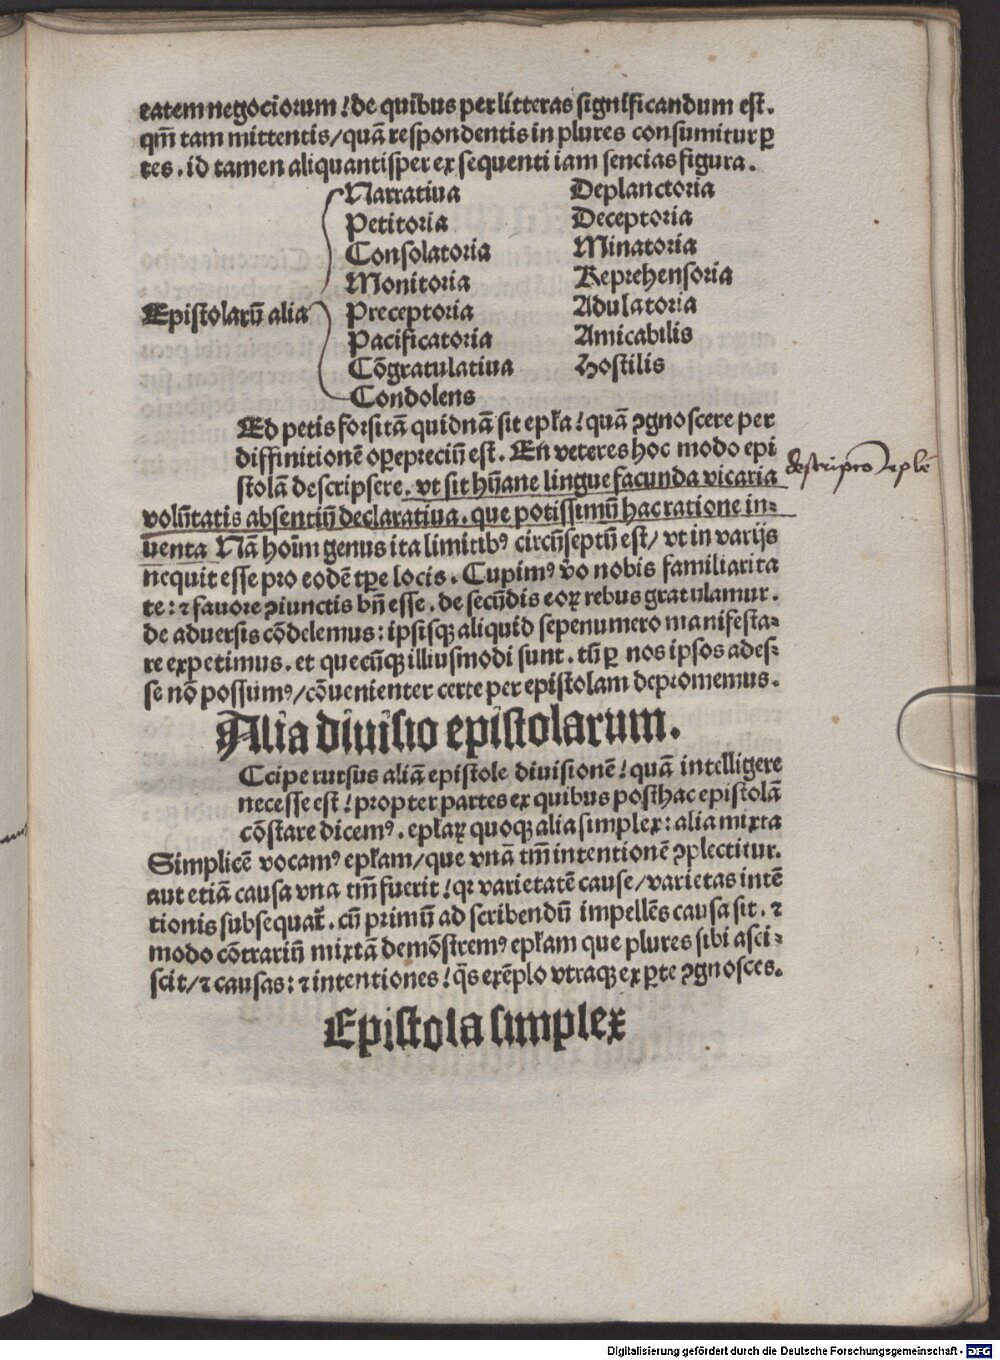 eatem negociorum/ de quibus per litteras significandum est.
qm̄ tam mittentis/quā respondentis in plures consumitur ꝑ
tes. id tamen aliquantisper ex sequenti iam sencias figura.
Epistolarū alia
Narratiua
Petitoria
Consolatoria
Monitoria
Preceptoria
Pacificatoria
Cōgratulatiua
Condolens
Deplanctoria
Deceptoria
Minatoria
Reprehensoria
Adulatoria
Amicabilis
Hostilis
Ed petis forsitā quidnā sit epła/ quā ꝯgnoscere per
diffinitionē oꝑepreciū est. En veteres hoc modo epi
stolā descripsere. vt sit hūane lingue facunda vicaria
descriptio eple
volūtatis absentiū declaratiua. que potissimū hac ratione in⸗
uenta Nā hoīm genus ita limitibꝰ circūseptū est/ vt in varijs
nequit esse pro eodē tꝑe locis. Cupimꝰ v̄o nobis familiarita
te: ⁊ fauore ꝯiunctis bn̄ esse. de secūdis eoꝝ rebus gratulamur.
de aduersis cōdelemus: ipsisqꝫ aliquid sepenumero manifesta⸗
re expetimus. et quecūqꝫ illiusmodi sunt. tū ꝑ nos ipsos ades⸗
se nō possumꝰ/ cōuenienter certe per epistolam depromemus.
Alia diuisio epistolarum.
Ccipe rursus aliā epistole diuisionē/ quā intelligere
necesse est/ propter partes ex quibus posthac epistolā
cōstare dicemꝰ. epłaꝝ quoqꝫ alia simplex: alia mixta
Simplicē vocamꝰ epłam/que vnā tm̄ intentionē ꝯplectitur.
aut etiā causa vna tm̄ fuerit/ qꝛ varietatē cause/varietas intē
tionis subsequat̄. cū primū ad scribendū impellēs causa sit. ⁊
modo cōtrariū mixtā demōstremꝰ epłam que plures sibi asci⸗
scit/⁊ causas: ⁊ intentiones/ q̄s exēplo vtraqꝫ ex ꝑte ꝯgnosces.
Epistola simplex
Digitalisierung gefördert durch die Deutsche Forschungsgemeinschaft - DFG